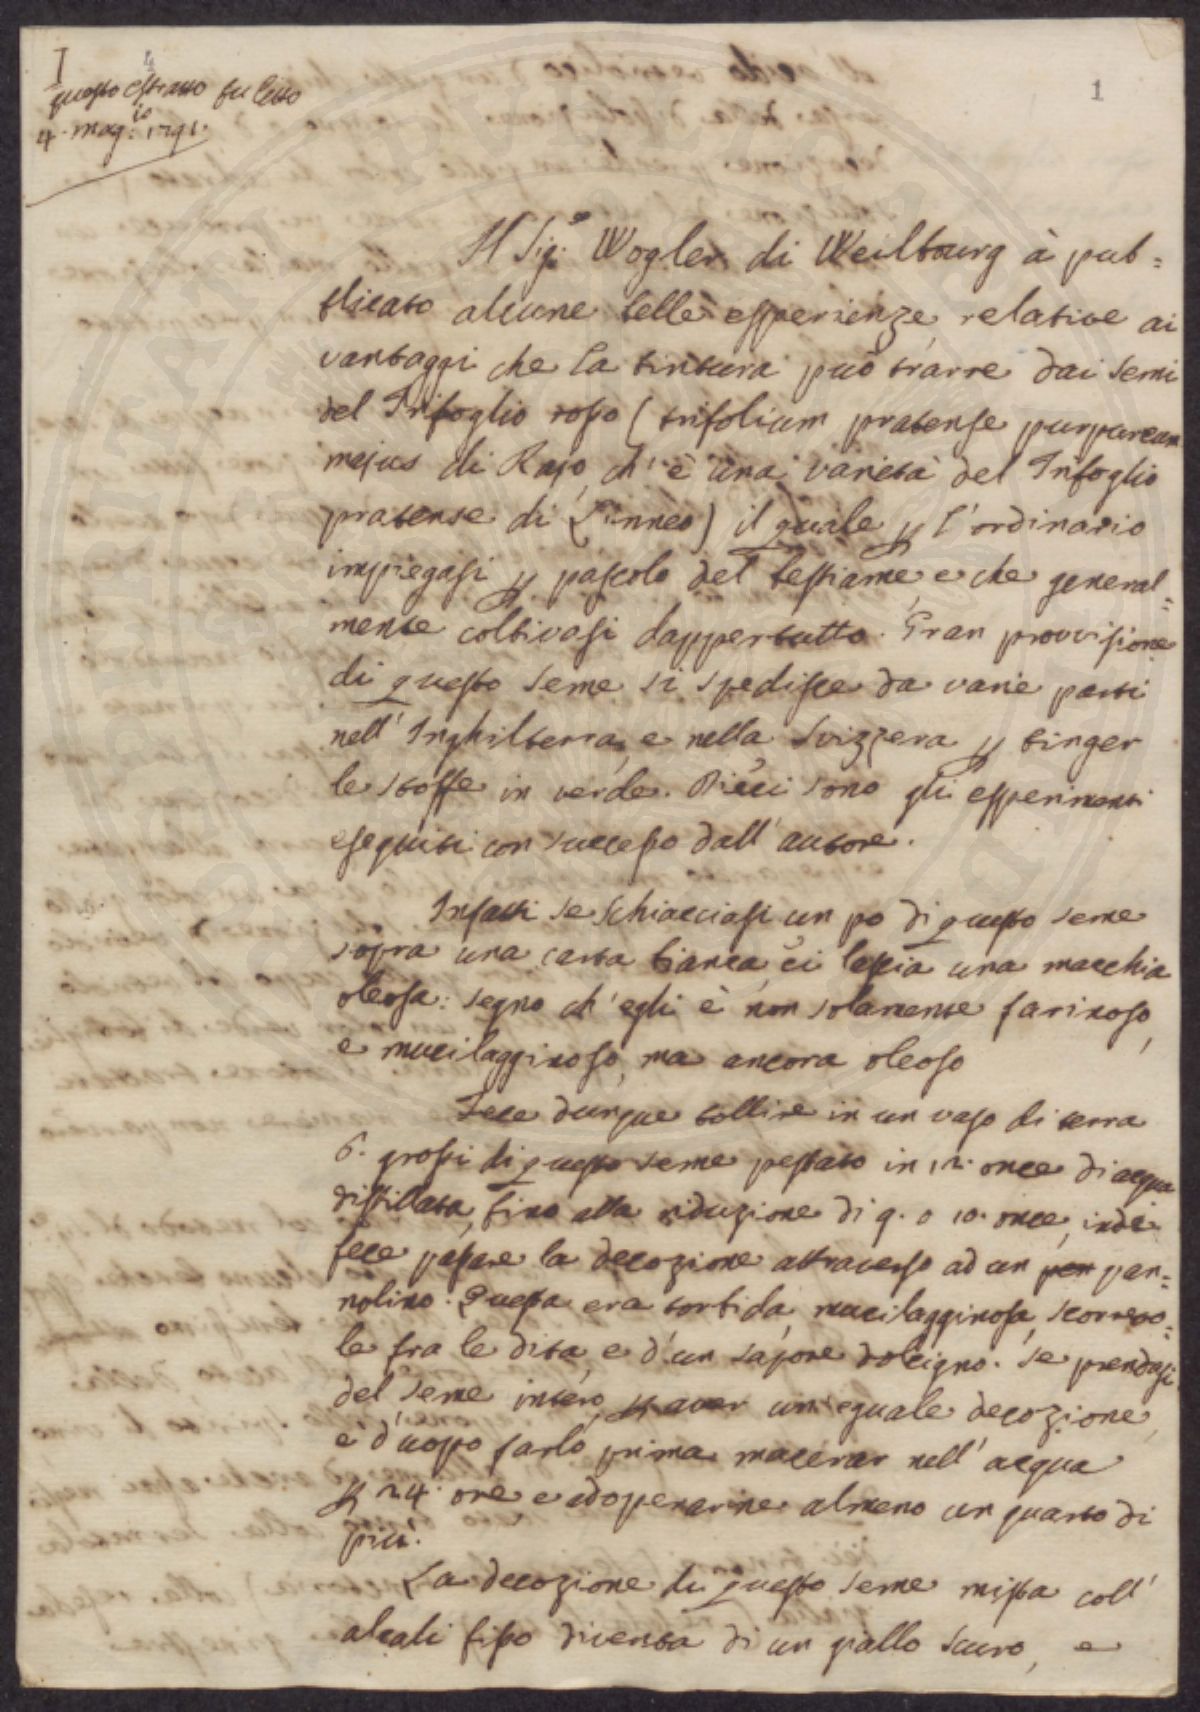 I
questo estratto fu letto
4. mag:io 1791.
1
Il Sig:e Wogler di Weilbourg à pub=
blicato alcune belle esperienze relative ai
vantaggi che la tintura può trarre dai semi
del Trifoglio rosso (trifolium pratense purpureum
majus di Rajo, ch'è una varietà del Trifoglio
pratense di Linneo) il quale p l'ordinario
impiegasi p pascolo del bestiame, e che general=
mente coltivasi dappertutto. Gran provvisione
di questo seme si spedisce da varie parti
nell'Inghilterra, e nella Svizzera p tinger
le stoffe in verde. Dieci sono gli esperimenti
eseguiti con successo dall'autore.
Infatti se schiacciasi un po di questo seme
sopra una carta bianca, ci lascia una macchia
oleosa: segno ch'egli è non solamente farinoso,
e mucilagginoso, ma ancora oleoso
Fece dunque bollire in un vaso di terra
6. grossi di questo seme pestato in 12. once di acqua
distillata, fino alla riduzione di 9. o 10. once, indi
fece passare la decozione attraverso ad un pan=
nolino. Questa era torbida, mucilagginosa, scorrevo=
le fra le dita, e d'un sapore dolcigno. Se prendasi
del seme intero, p aver un'eguale decozione,
è d'uopo farlo prima macerar nell'acqua
p 24. ore e adoperarne almeno un quarto di
più.
La decozione di questo seme mista coll'
alcali fisso diventa di un giallo scuro, e